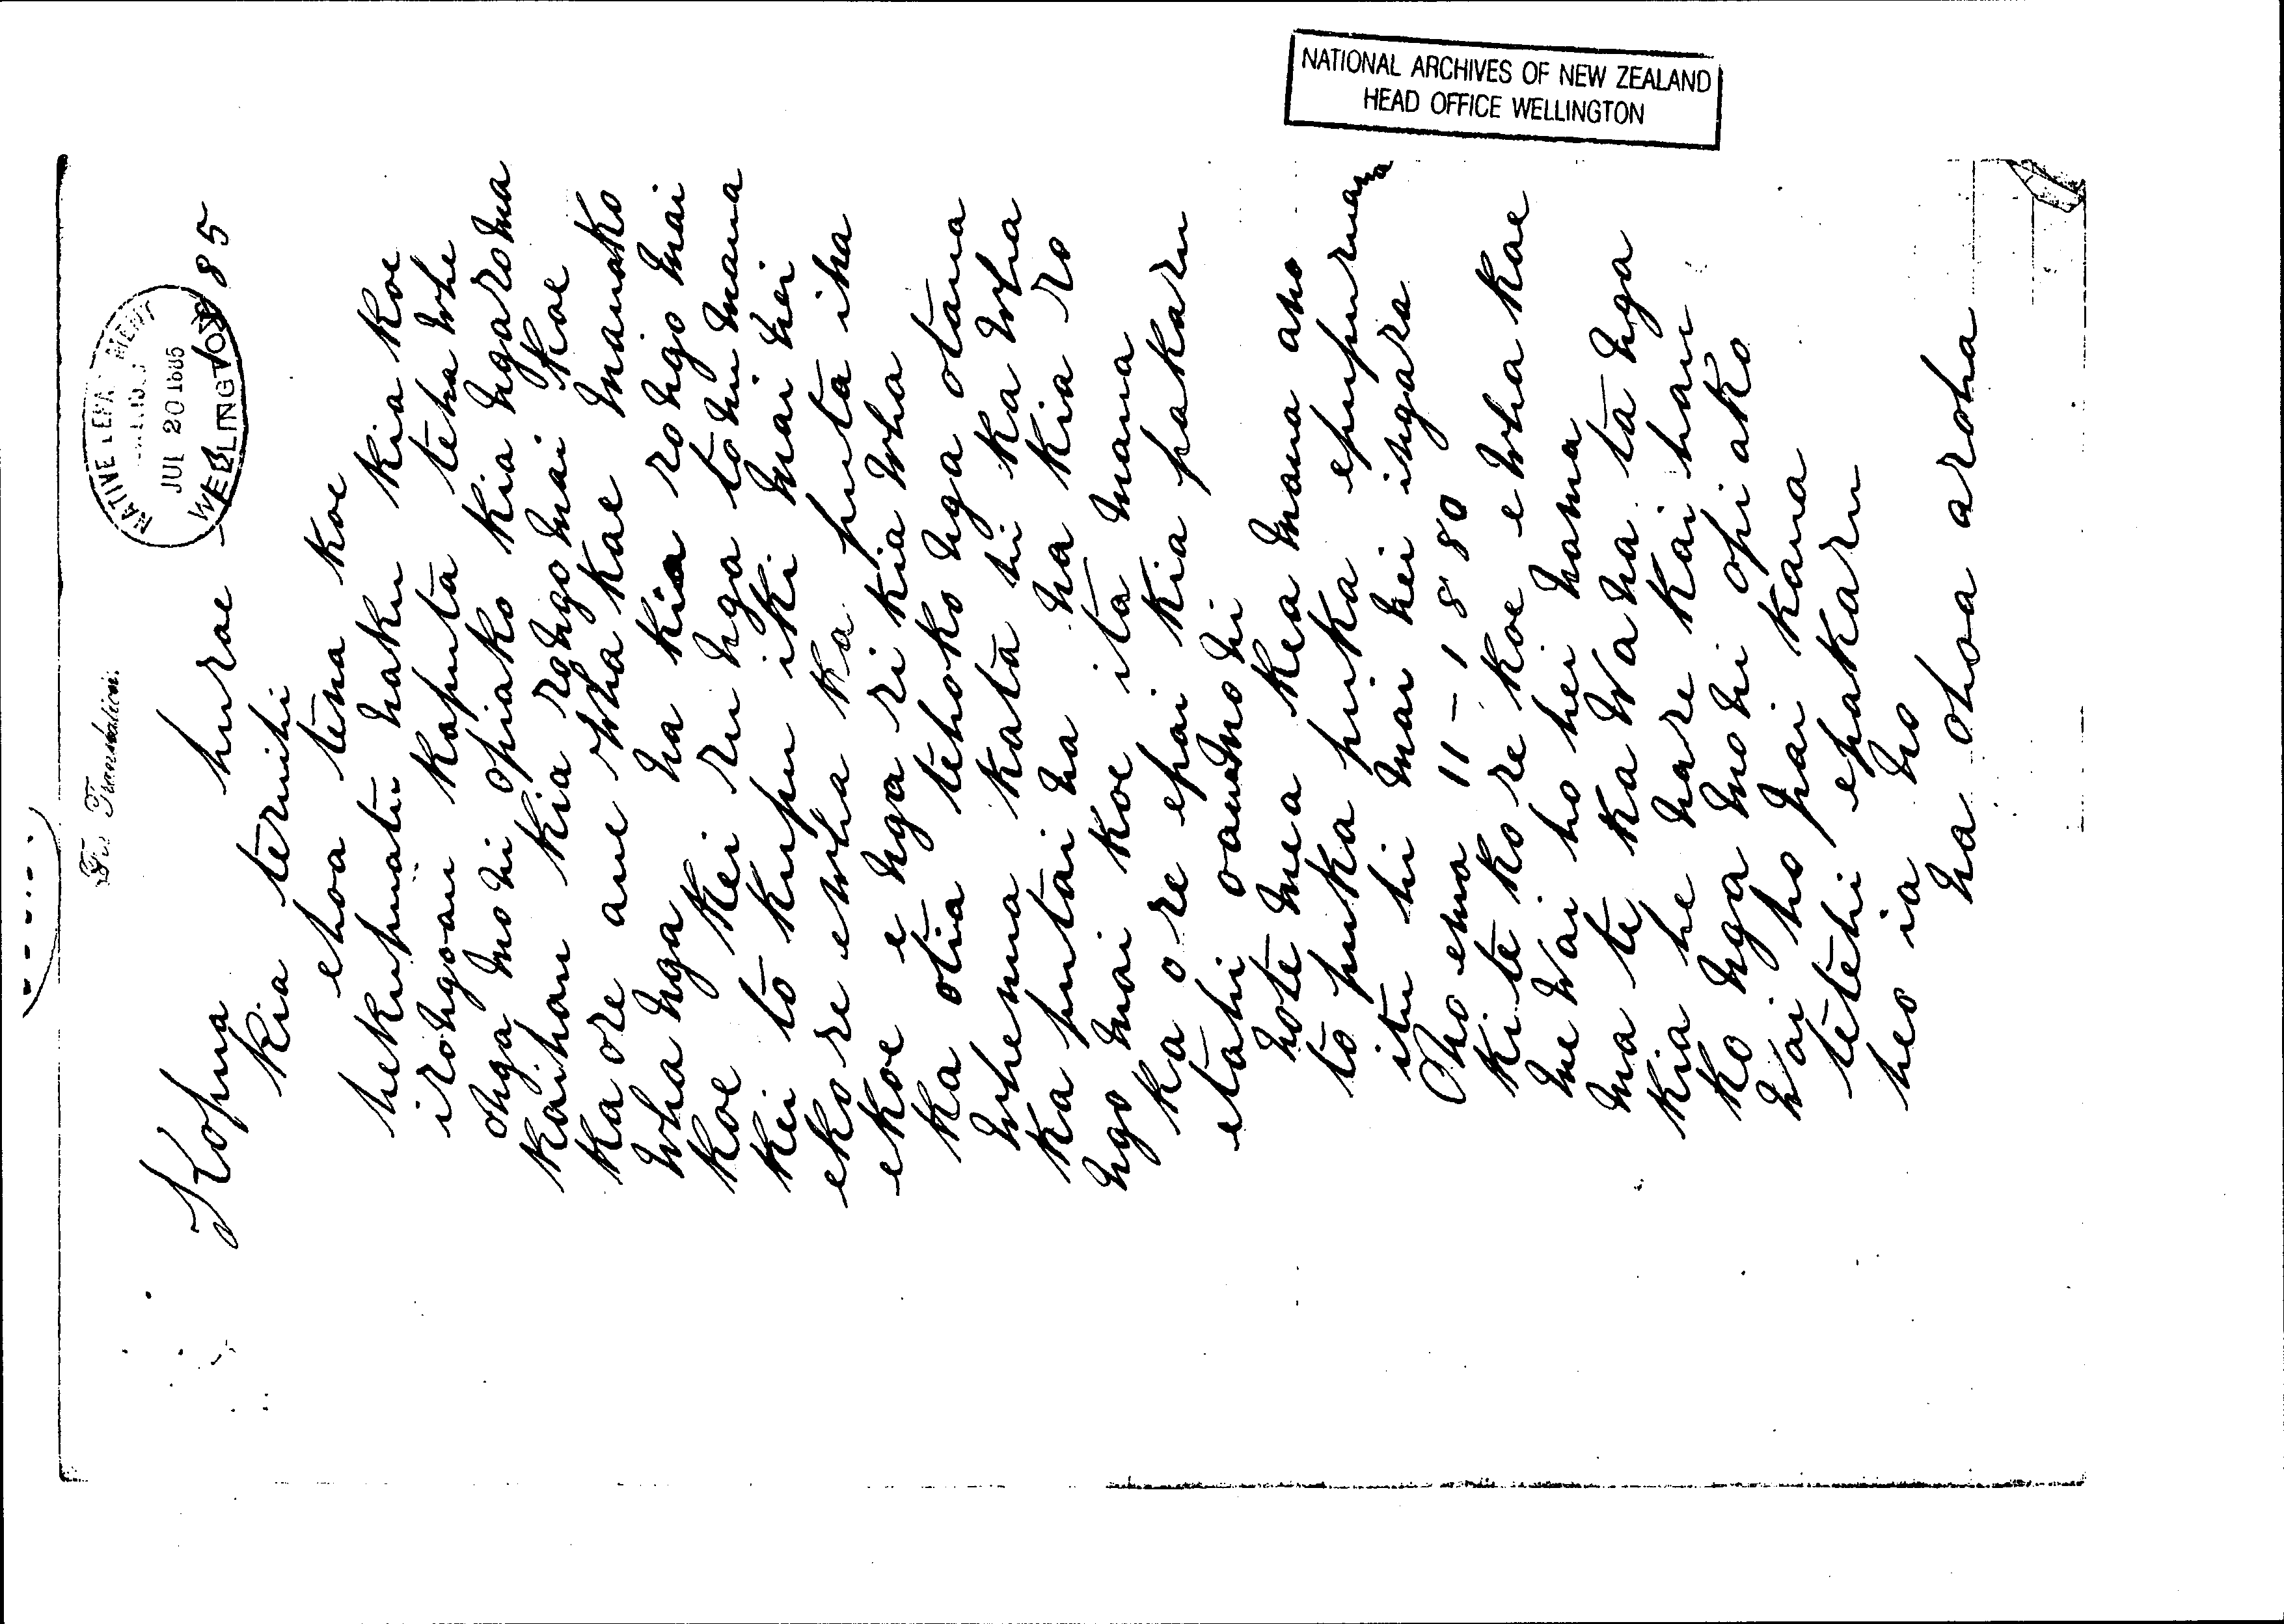 NATIONAL ARCHIVES OF NEW ZEALAND
HEAD OFFICE WELLINGTON
NATIVE
JUL 20 1885
WELLINGTON
Kopua hurae 85
Kia teruihi
ehoa tena koe
hekupuatu naku kia koe
irongoau kaputa tena whe
onga mohi opiako kia ngaroma
kaihau kia rongo mai koe
kaore aue whakae maiakoko
whanga na kia rongo mai
koe kei runga tonu mana
kei to kupu iki mai nei
ekore ewha ka puta iha
ekoe e nga ri kia wha
ka otia tehoko nga otana
whenua kata hi ka wha
ka putai na na kia ro
ngo mai koe ita mana
ka ore epai kia pakaru
etahi oauahohi
note mea kea mana aho
to puka puka epupurua
itu hi mai hei ingara
Oho ehua 11 - 1880
ki te kore koe e whakae
me wai ho hei homa
ma te ka wana ta nga
kia he hare kai hau
ko nga mohi opiako
wai ho pai kaua
tetehi epakaru
heo ia ho
na ohoa aroha